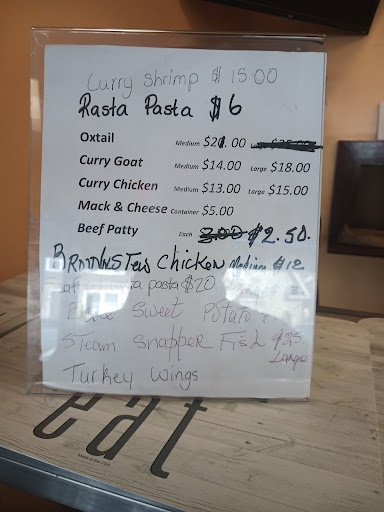 Curry Shrimp $15.00
Rasta Pasta $6
Oxtail Medium $21.00
Curry Goat Medium $14.00 Large $18.00
Curry Chicken Medium $13.00 Large $15.00
Mack & Cheese Container $5.00
Beef Patty Each $2.50.
Chicken Medium $12
pasta $20
Sweet Potato
Steam Snapper Fish $25
Large
Turkey Wings
eat